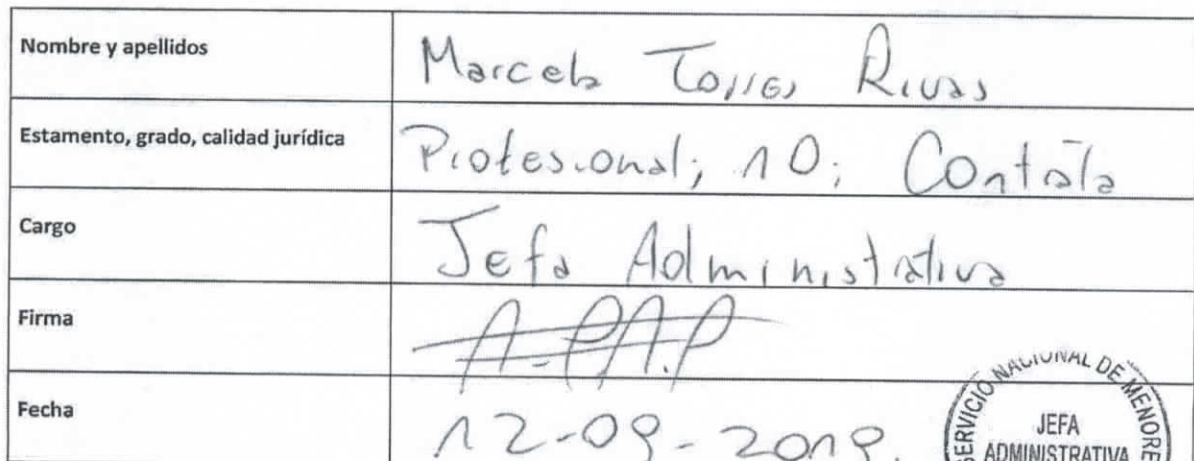 Nombre y apellidos
Marcela Torres Rivas
Estamento, grado, calidad jurídica
Profesional; 10; Contrata
Cargo
Jefa Administrativa
Firma
Fecha
12-09-2019.
SERVICIO NACIONAL DE MENORE
JEFA
ADMINISTRATIVA